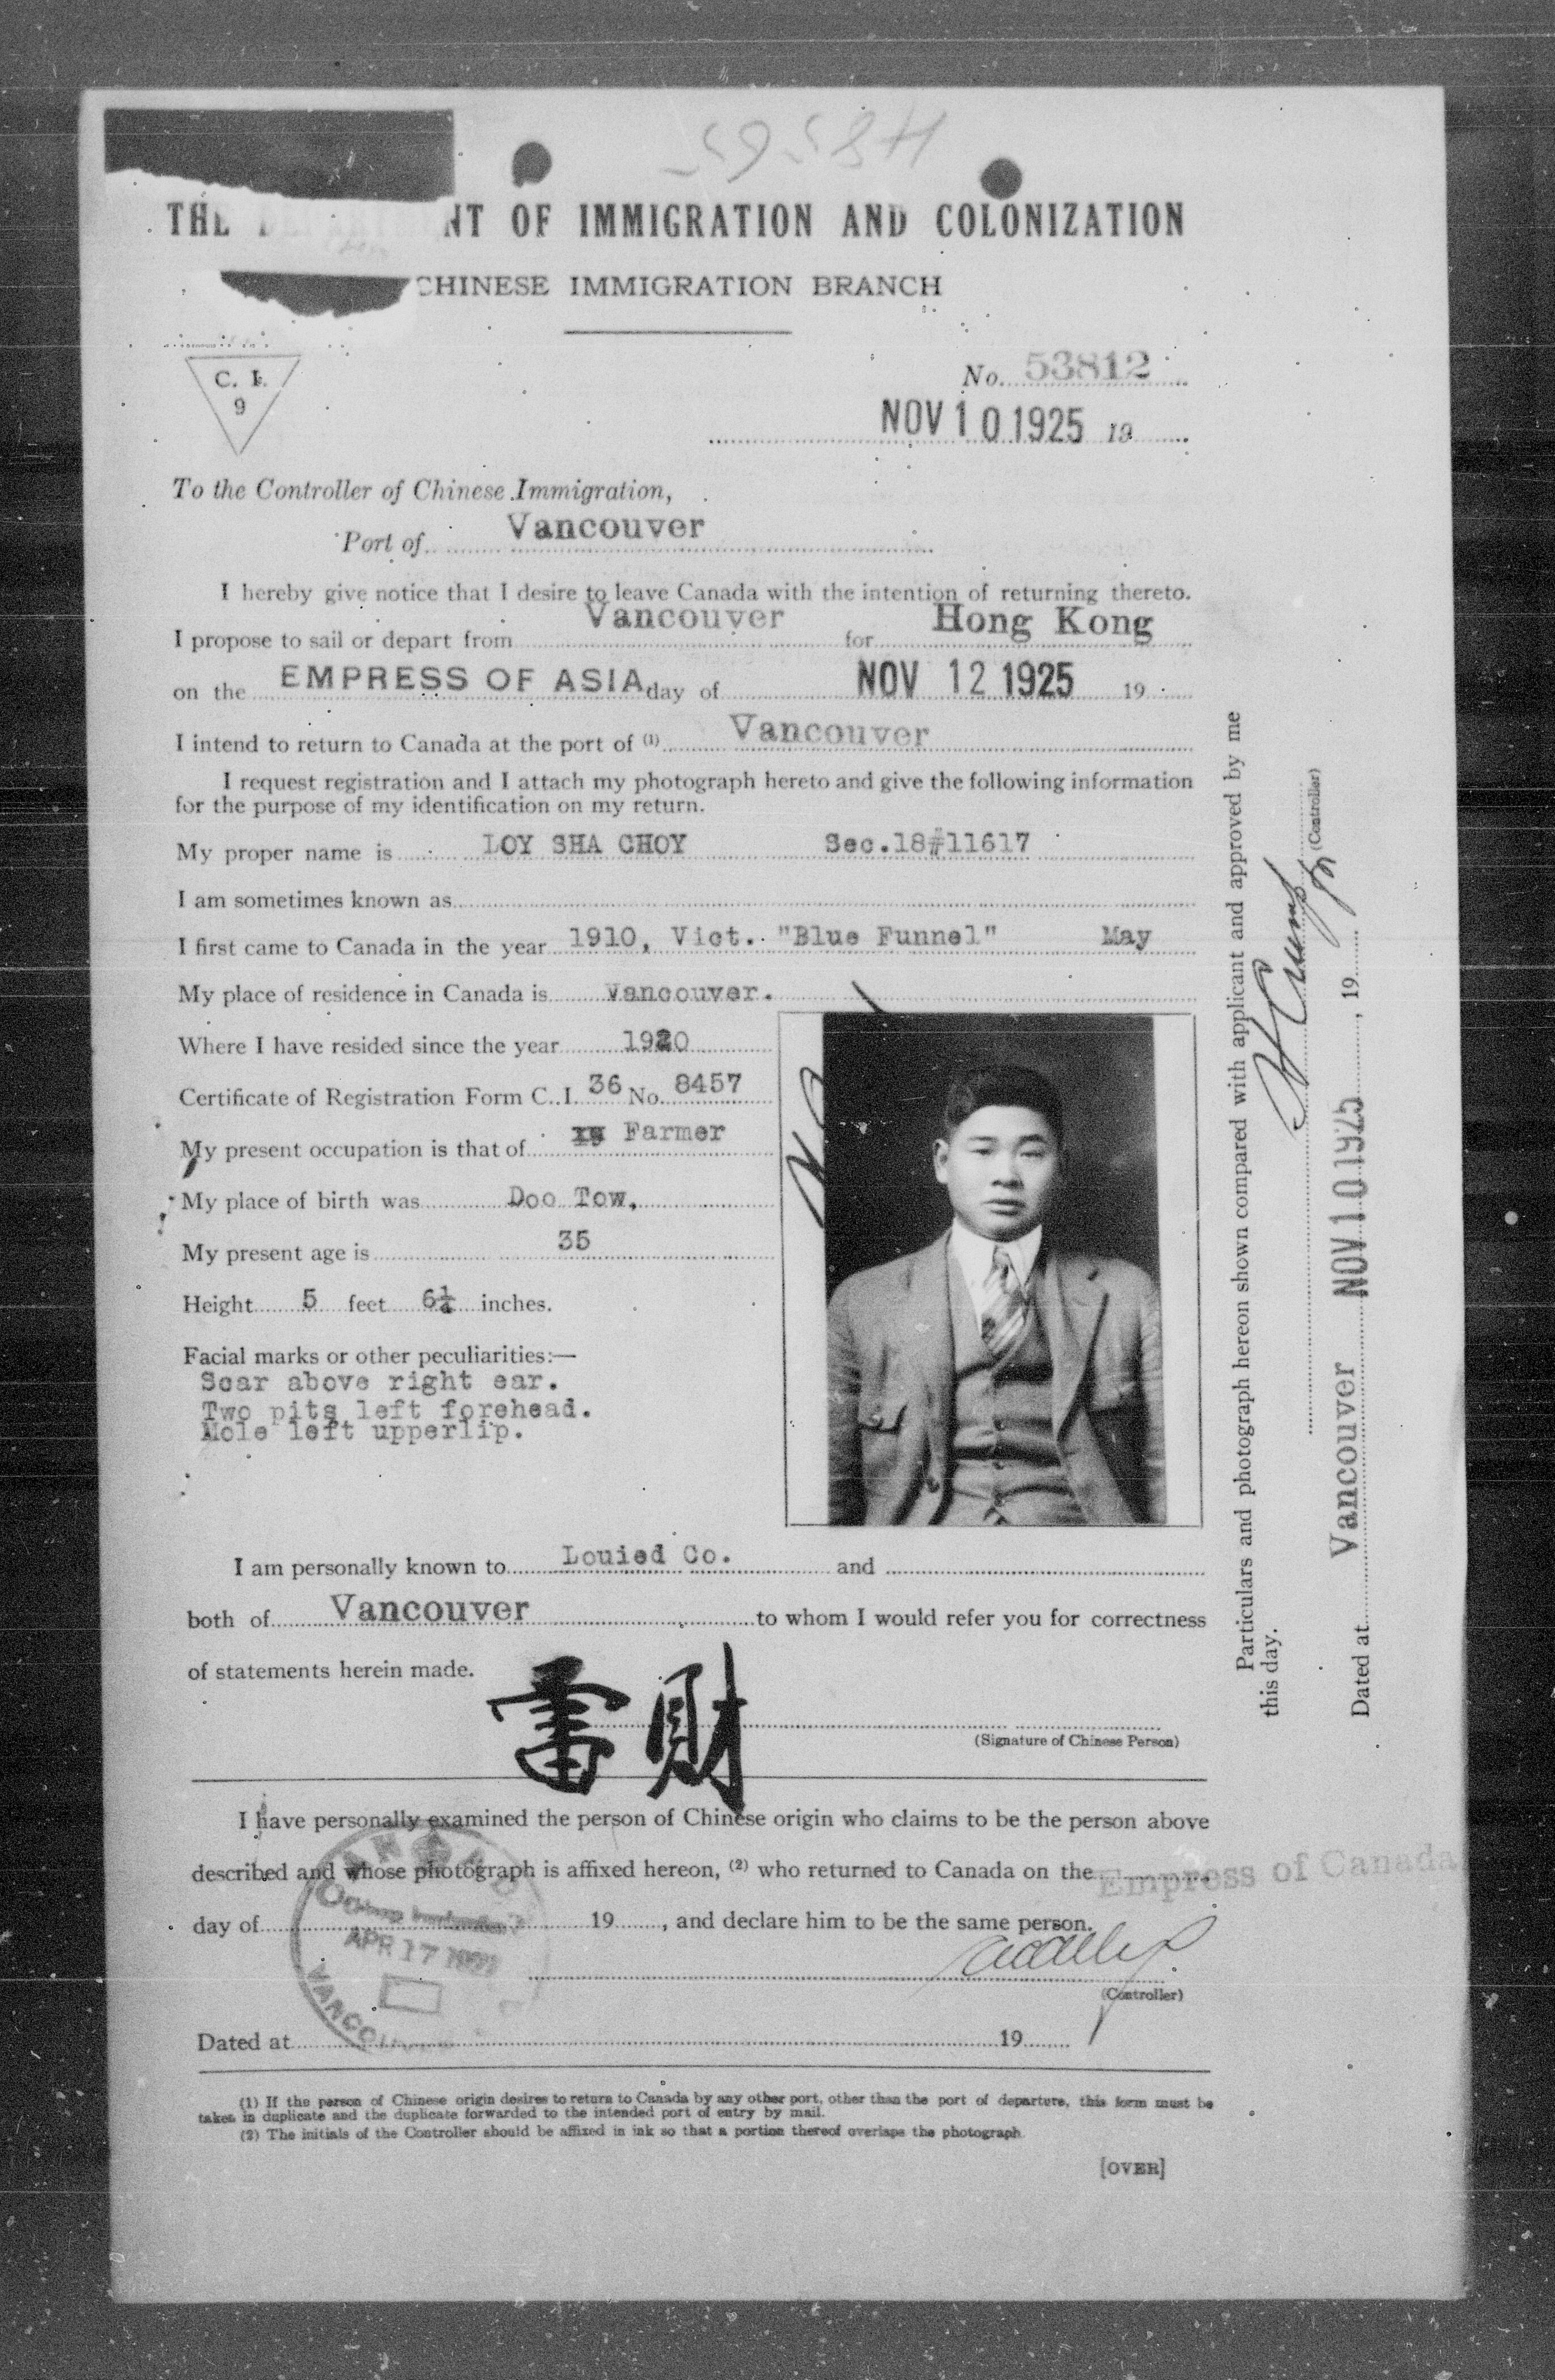 THE DEPARTMENT OF IMMIGRATION AND COLONIZATION
CHINESE IMMIGRATION BRANCH
C. I.
9
No. 53812
NOV 10 1925 19
To the Controller of Chinese Immigration,
Port of Vancouver
I hereby give notice that I desire to leave Canada with the intention of returning thereto.
I propose to sail or depart from Vancouver for Hong Kong
on the EMPRESS OF ASIA day of NOV 12 1925 19
I intend to return to Canada at the port of (1) Vancouver
I request registration and I attach my photograph hereto and give the following information
for the purpose of my identification on my return.
My proper name is LOY SHA CHOY Sec.18#11617
I am sometimes known as
I first came to Canada in the year 1910, Vict. "Blue Funnel" May
My place of residence in Canada is Vancouver.
Where I have resided since the year 1920
Certificate of Registration Form C. I. 36 No. 8457
My present occupation is that of Farmer
My place of birth was Doo Tow,
My present age is 35
Height 5 feet 6¼ inches.
Facial marks or other peculiarities:—
Scar above right ear.
Two pits left forehead.
Mole left upperlip.
I am personally known to Louied Co. and
both of Vancouver to whom I would refer you for correctness
of statements herein made.
雷財
(Signature of Chinese Person)
I have personally examined the person of Chinese origin who claims to be the person above
described and whose photograph is affixed hereon, (2) who returned to Canada on the Empress of Canada
day of 19 , and declare him to be the same person.
APR 17
(Controller)
VANCOU
Dated at 19
(1) If the person of Chinese origin desires to return to Canada by any other port, other than the port of departure, this form must be
taken in duplicate and the duplicate forwarded to the intended port of entry by mail.
(2) The initials of the Controller should be affixed in ink so that a portion thereof overlaps the photograph.
[OVER]
Particulars and photograph hereon shown compared with applicant and approved by me
this day.
(Controller)
Dated at Vancouver NOV 10 1925 , 19